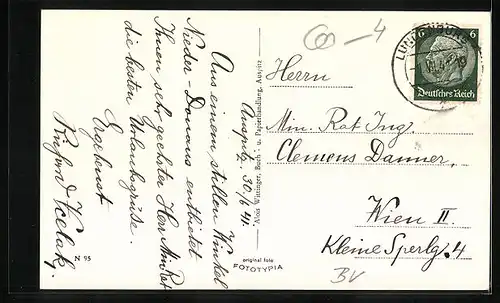 Auspitz, 30/6 41.
Aus einem stillen Winkel
Nieder-Donaus entbietet
Ihnen sehr geehrter Herr Min Rat
die besten Urlaubsgrüße.
Ergebenst
N 95
Alois Wittinger, Buch- u. Papierhandlung, Auspitz
original foto
FOTOTYPIA
6 6
Deutsches Reich
Herrn
Min. Rat Ing.
Clemens Danner,
Wien II.
Kleine Sperlg. 4
BV